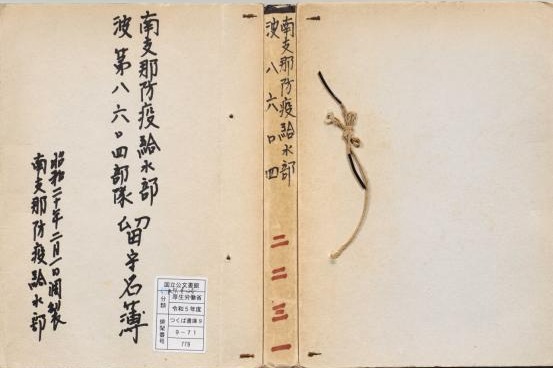 南支那防疫給水部
波第八六〇四部隊 留守名簿
昭和二十年二月一日調製
南支那防疫給水部
国立公文書館
分類
厚生労働省
令和5年度
つくば書庫9
排架番号
9-71
775
南支那防疫給水部
波八六〇四
二二三一